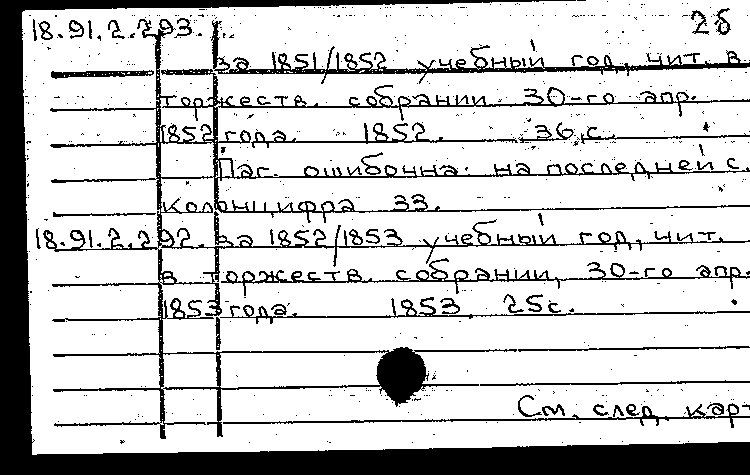 18.91.2.293. 2б
за 1851/1852 учебный год, чит. в
торжеств. собрании 30-го апр.
1852 года. 1852. 36 с.
Паг. ошибочна: на последней с.
колонцифра 33.
18.91.2.292. за 1852/1853 учебный год, чит.
в торжеств. собрании, 30-го апр.
1853 года. 1853. 25 с.
См. след. карт